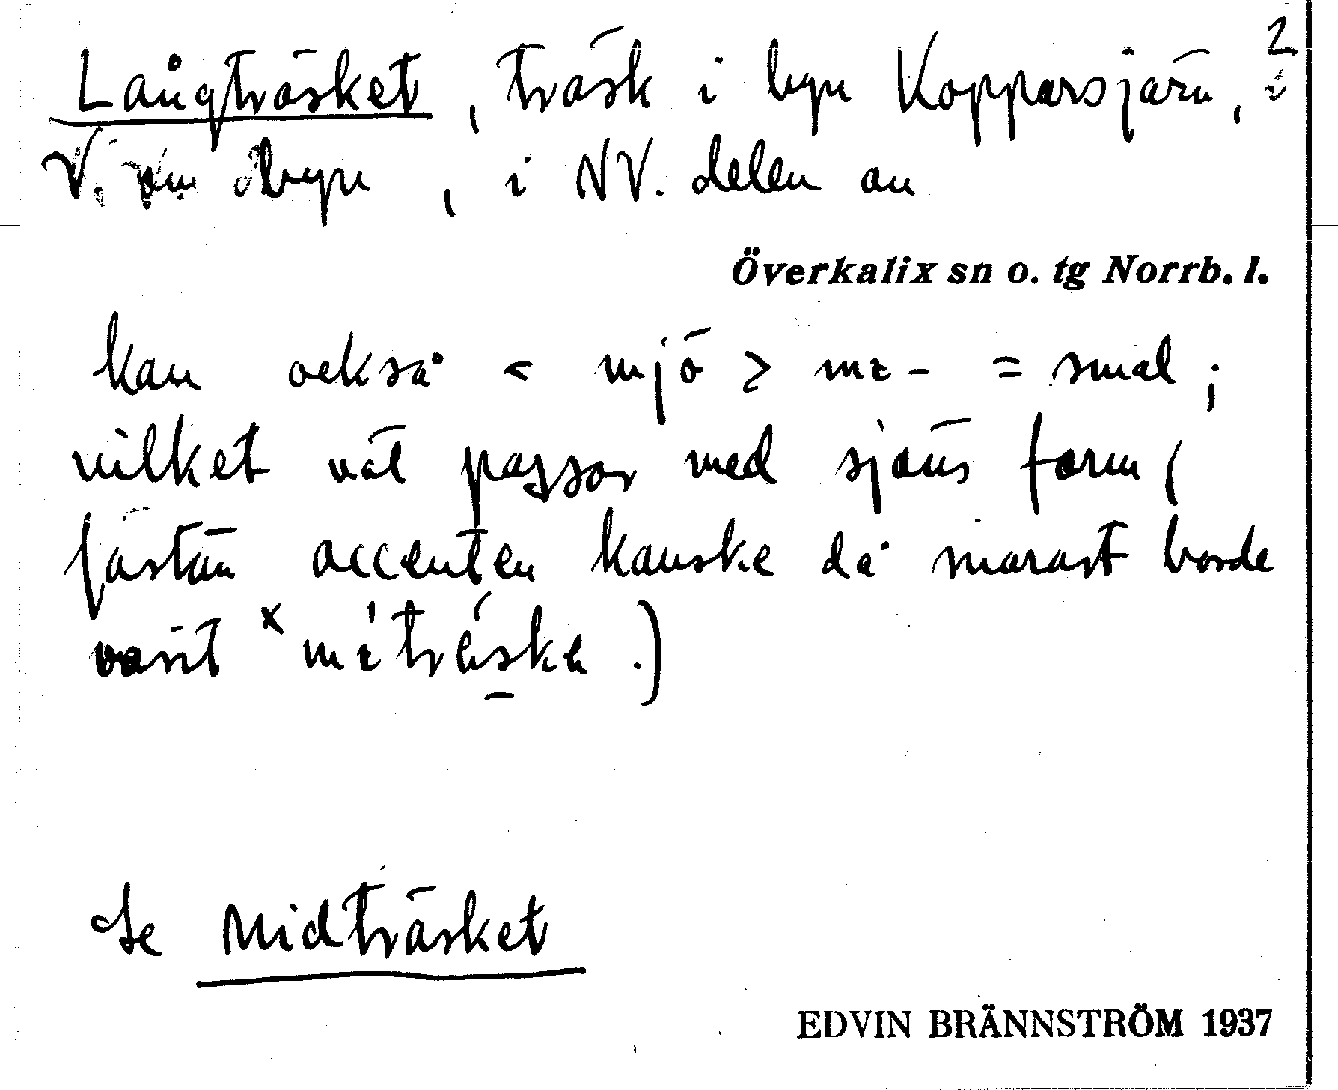 2
Långträsket, träsk i byn Kopparsjärn, i
V. om byn, i NV. delen av
Överkalix sn o. tg Norrb. l.
kan också < mjö > mε- = smal;
vilket väl passar med sjöns form (
fastän accenten kanske då snarast borde
varit × mε träska.)
Se Midträsket
EDVIN BRÄNNSTRÖM 1937